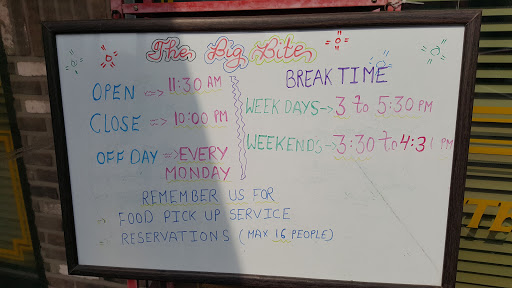 The Big Bite
OPEN => 11:30 AM
CLOSE => 10:00 PM
OFF DAY => EVERY
MONDAY
BREAK TIME
WEEK DAYS -> 3 to 5:30 PM
WEEKENDS -> 3:30 to 4:31 PM
REMEMBER US FOR
- FOOD PICK UP SERVICE
- RESERVATIONS (MAX 16 PEOPLE)